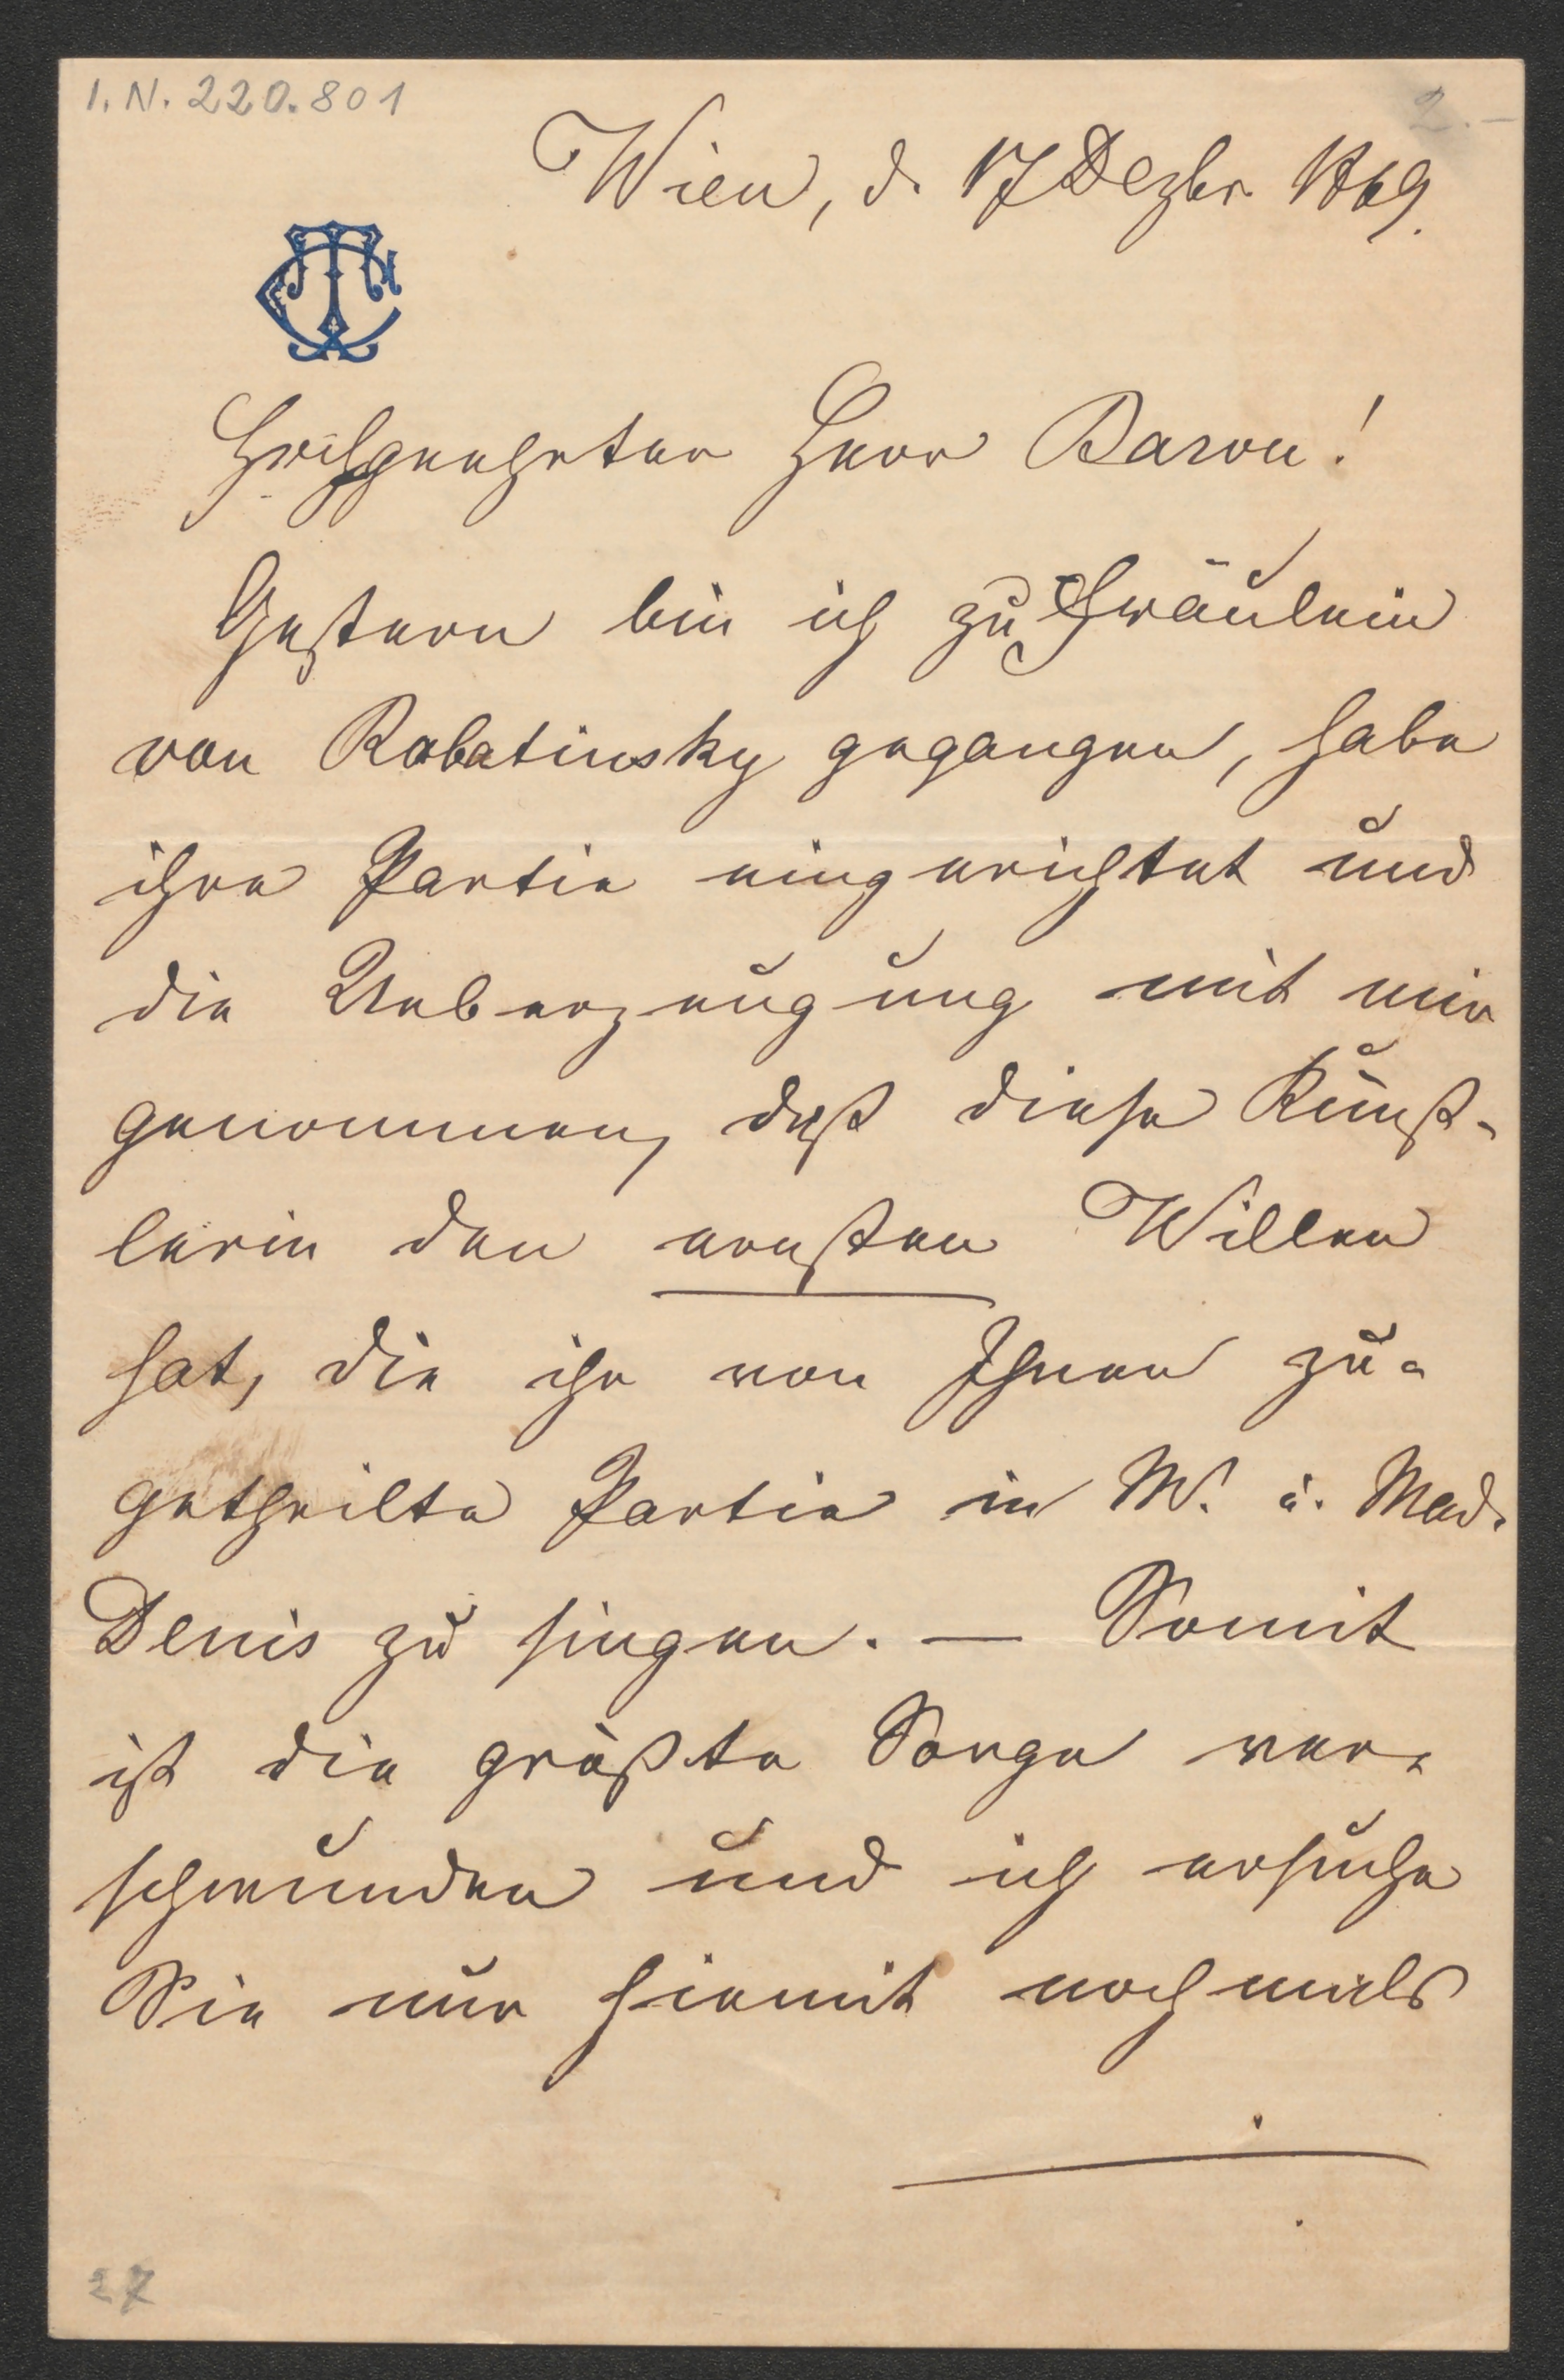 I.N. 220.801
2.-
Wien, d. 17 Dezbr 1869.
CT
Hochgeehrter Herr Baron!
Gestern bin ich zu Fräulein
von Rabatinsky gegangen, habe
ihre Partie eingerichtet und
die Ueberzeugung mit mir
genommen, daß diese Künst-
lerin den ernsten Willen
hat, die ihr von Ihnen zu-
getheilte Partie in M. u. Mad.
Denis zu singen. — Somit
ist die größte Sorge ver-
schwunden und ich ersuche
Sie nur hiemit nochmals
27